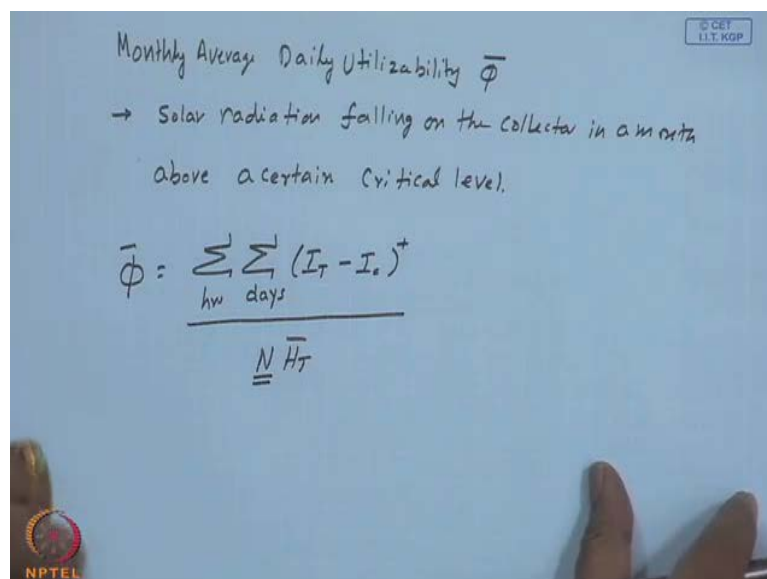 © CET
I.I.T. KGP
Monthly Average Daily Utilizability ϕ̅
→ Solar radiation falling on the collector in a month
above a certain Critical level.
ϕ̅ = ∑ ∑ (I_T - I_c)⁺
hr days
N H̅_T
NPTEL